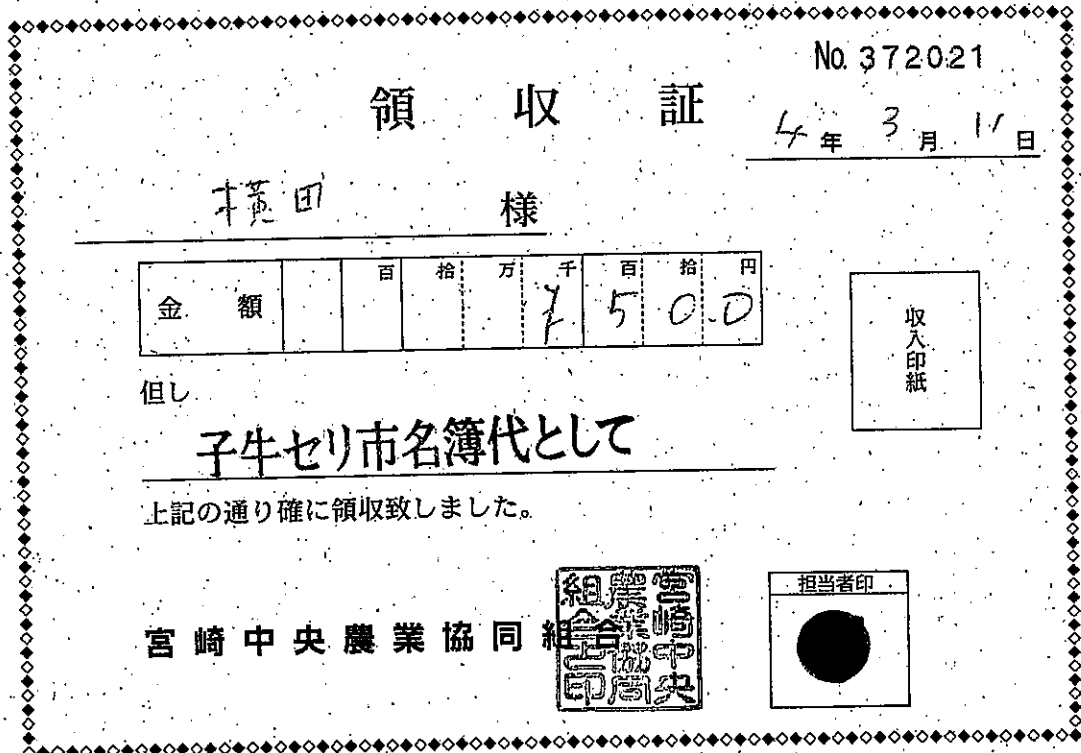 No. 372021
領収証
4年3月11日
横田 様
金額 百拾万千百拾円
7500
収入印紙
但し
子牛セリ市名簿代として
上記の通り確に領収致しました。
宮崎中央農業協同組合
宮崎中央農業協同組合之印
担当者印